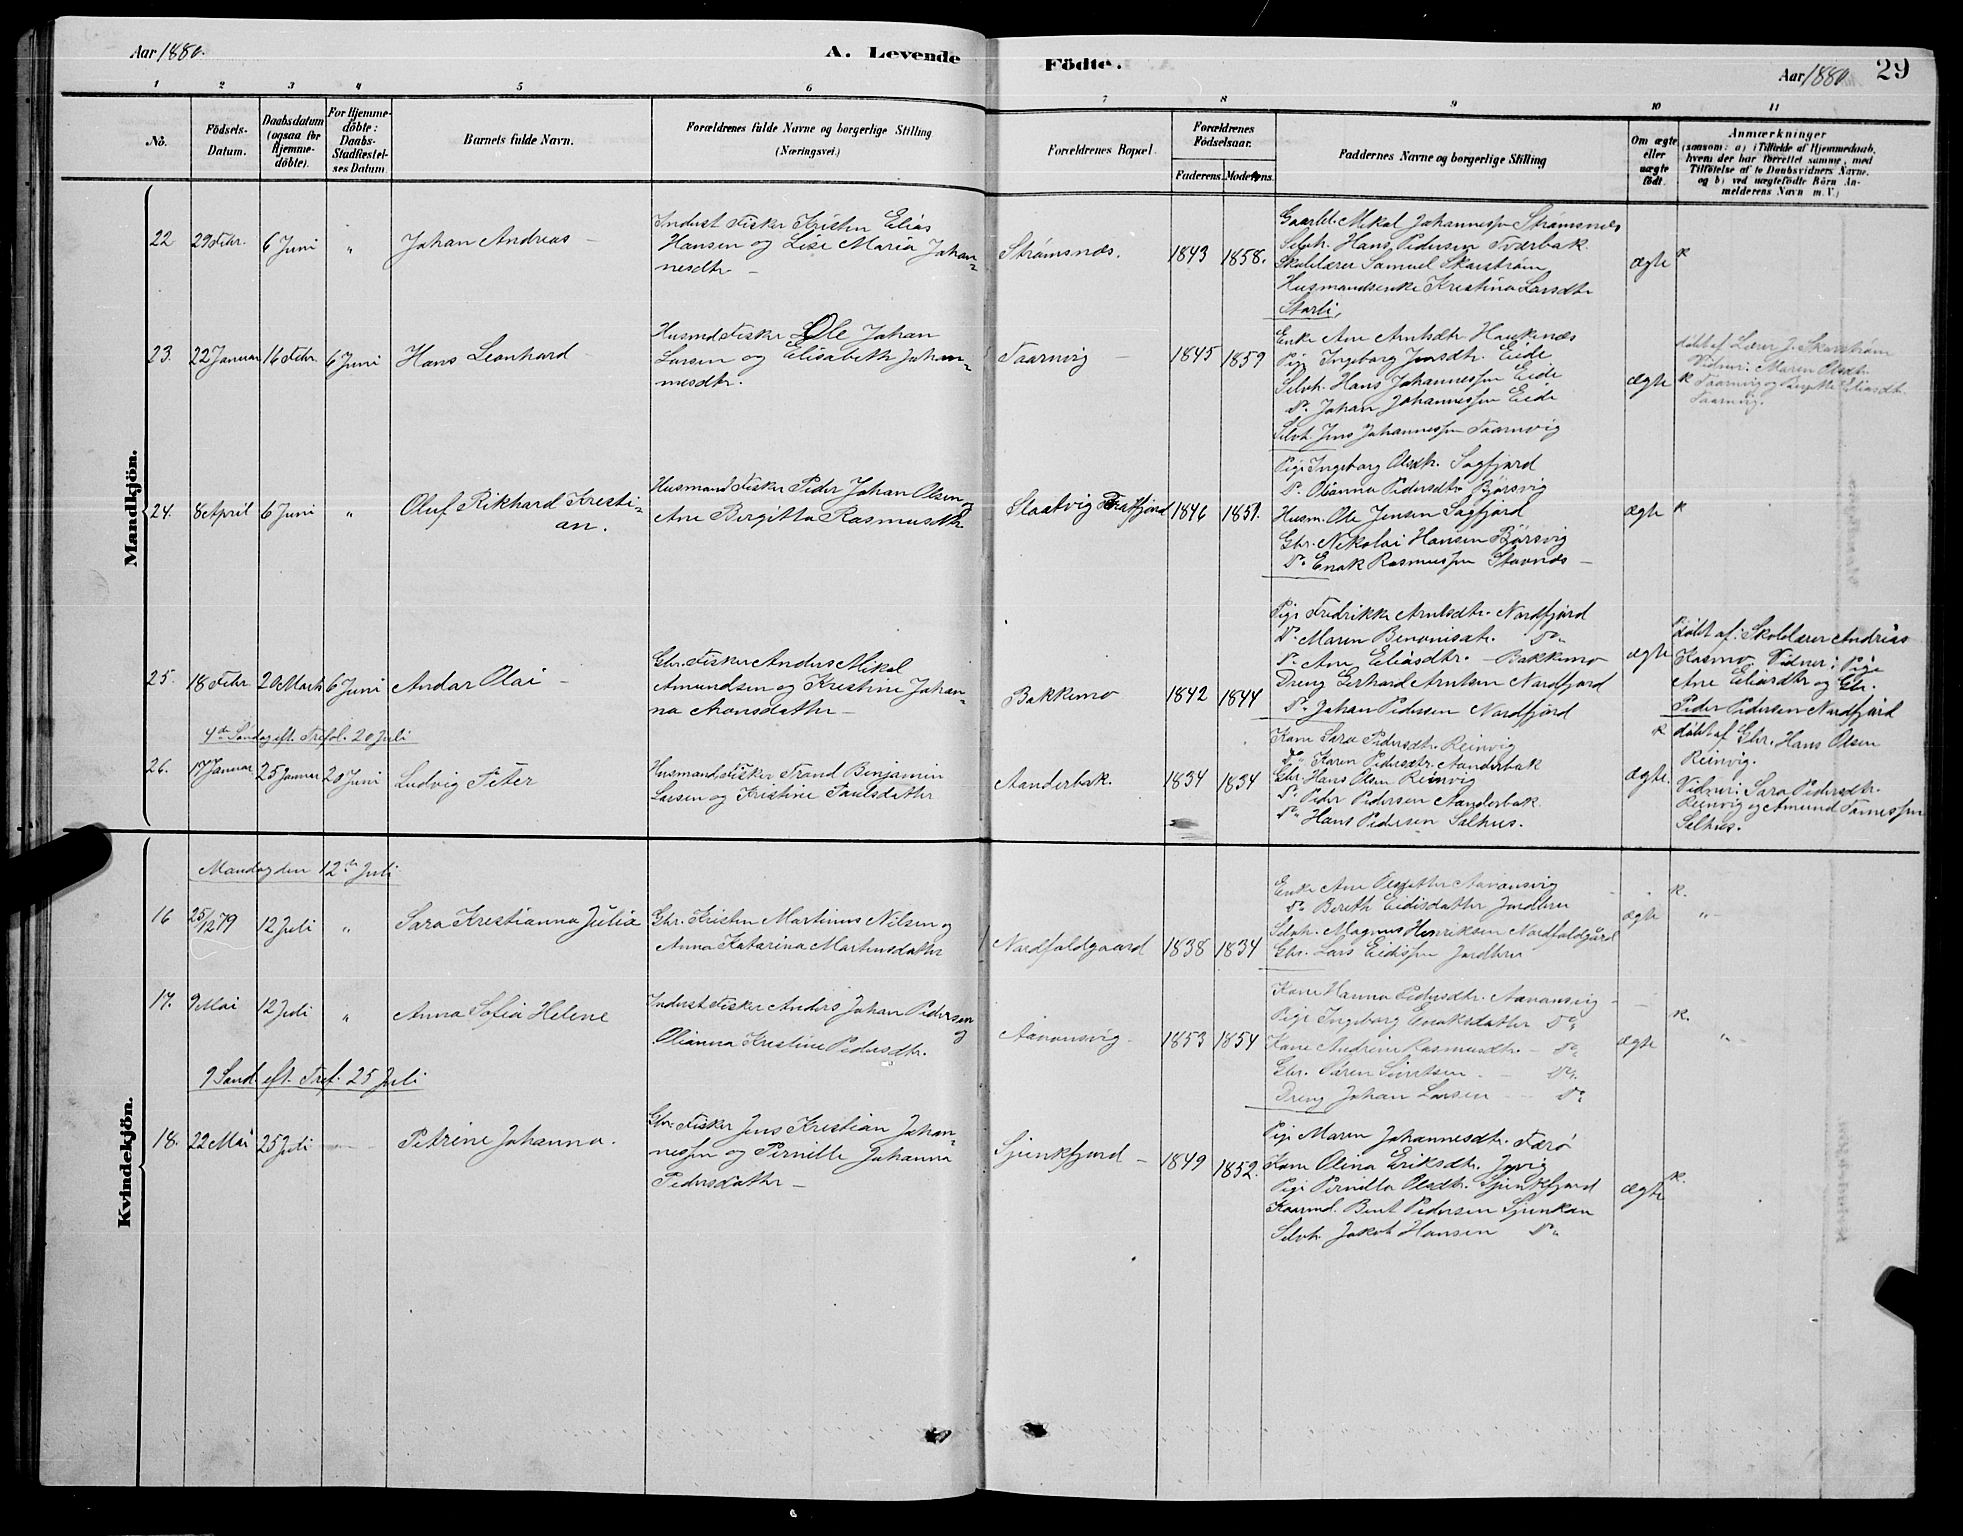 Aar 1880.
A. Levende Födte.
Aar 1880
29
1 2 3 4 5 6 7 8 9 10 11
No.
Födsels-Datum.
Daabsdatum (ogsaa for Hjemme-döbte).
For Hjemme-döbte: Daabs-Stadfæstel-ses Datum
Barnets fulde Navn.
Forældrenes fulde Navne og borgerlige Stilling (Næringsvei.)
Forældrenes Bopæl.
Forældrenes Födselsaar.
Faderens. Moderens.
Faddernes Navne og borgerlige Stilling
Om ægte eller uægte födt.
Anmærkninger
(saasom: a) i Tilfælde af Hjemmedaab, hvem der har forrettet samme, med Tilföielse af to Daabsvidners Navne. og b) ved uægtefödte Börn Anmelderens Navn m. V.)
Mandkjön.
22 29 Febr. 6 Juni " Johan Andreas –
Inderst Fisker Kristen Elias
Hansen og Lise Maria Johan-
nesdtr –
Strømsnes. 1843 1858.
Gaardbr. Mikal Johannessen Strømsnes
Selvh. Hans Pedersen Tverbak.
Skolelærer Samuel Skarstrøm
Husmandsenke Kristina Larsdtr
Storli,
ægte k
23. 22 Januar 16 Febr. 6 Juni Hans Leonhard
Husmd Fisker Ole Johan
Larsen og Elisabeth Johan-
nesdtr.
Taarnvig – 1845 1859
Enke Ane Arntsdtr Haukenæs
Pige Ingeborg Jensdtr. Eide
Selvh. Hans Johannessen Eide
Do. Johan Johannessen Eide
Selvh Jens Johannessen Taarnvig
ægte k
døbt af Lærer J. Skarstrøm
Vidner: Maren Olsdtr.
Taarnvig og Eliasdtr.
Taarnvig.
24. 8 April 6 Juni " Oluf Rikhard Kresti-
an.
Husmand Fisker Peder Johan Olsen og
Ane Birgitta Rasmusdtr
1846 1851.
Pige Ingeborg Olsdtr. Sagfjord
Do. Olianna Pedersdtr Bjørsvig
Husm. Ole Jensen Sagfjord
Gbr. Nikolai Hansen Bjørsvig
Do. Enok Rasmussen Stavnes –
ægte k
25. 18 Febr 20 Marts 6 Juni Andar Olai –
Gbr. Fisker Anders Mikal
Amundsen og Kristine Johan-
na Aronsdatter –
Bakkemo 1842 1844
Pige Fredrikke Arntsdtr. Nordfjord
Do. Maren Benonisdtr. Do.
Do. Ane Eliasdtr. – Bakkemo
Dreng Gerhard Arntsen Nordfjord
Do. Johan Pedersen Nordfjord
ægte
døbt af: Skolelærer Andreas
Kosmo. Vidner: Pige
Ane Eliasdtr og Gbr.
Peder Pedersen Nordfjord
4de Søndag eft. Trefol. 20 Juli
26. 17 Januar 25 Januar 20 Juni Ludvig Peter
Husmand Fisker Trond Benjamin
Larsen og Kristine Paulsdatter
Aanderbak. 1834 1834
Kone Sara Pedersdtr. Reinvig
Do. Karen Pedersdtr. Aanderbak
Gbr. Hans Olsen Reinvig
Do. Peder Pedersen Aanderbak.
Do. Hans Pedersen Salhus.
ægte. k
døbt af Gbr. Hans Olsen
Reinvig.
Vidner: Sara Pedersdtr.
Reinvig og Amund
Salhus.
Kvindekjön.
Mandag den 12te Juli
16 25/12 79 12 Juli " Sara Krestianna Julia
Gbr. Kristen Martinus Nilsen og
Anna Katarina Martinsdatter
Nordfoldgaard 1838 1834
Enke Ane Olsdatter Aavansvig
Do Bereth Eidisdatter Jordbru
Selvh. Magnus Henriksen Nordfoldgård
Gbr. Lars Eidissen Jordbru
ægte k. "
17. 9 Mai 12 Juli " Anna Sofia Helene
Inderst Fisker Anders Johan Pedersen og
Olianna Kristine Pedersdtr.
Aavansvig. 1853 1854
Kone Hanna Pedersdtr. Aavansvig –
Pige Ingeborg Enoksdatter Do.
Kone Andrine Rasmusdtr. – Do.
Gbr. Søren Sivertsen. – Do.
Dreng Johan Larsen – Do
ægte k. "
9 Sønd. eft. Tref. 25 Juli
18. 22 Mai 25 Juli – Petrine Johanna.
Gbr. Fisker Jens Kristian Johan-
nessen og Pernille Johanna
Pedersdatter –
Sjunkfjord – 1849 1852.
Pige Maren Johannesdtr. Færø
Kone Olina Eriksdtr.
Pige Pernilla Olsdtr. Sjunkfjord
Kaarmd. Bent Pedersen Sjunkan
Selvh Jakob Hansen Do.
ægte k.